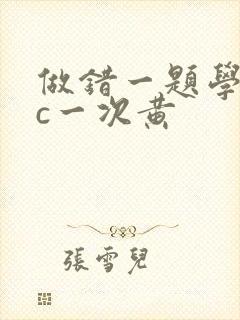 做錯一題學
c一次黃
張雪兒